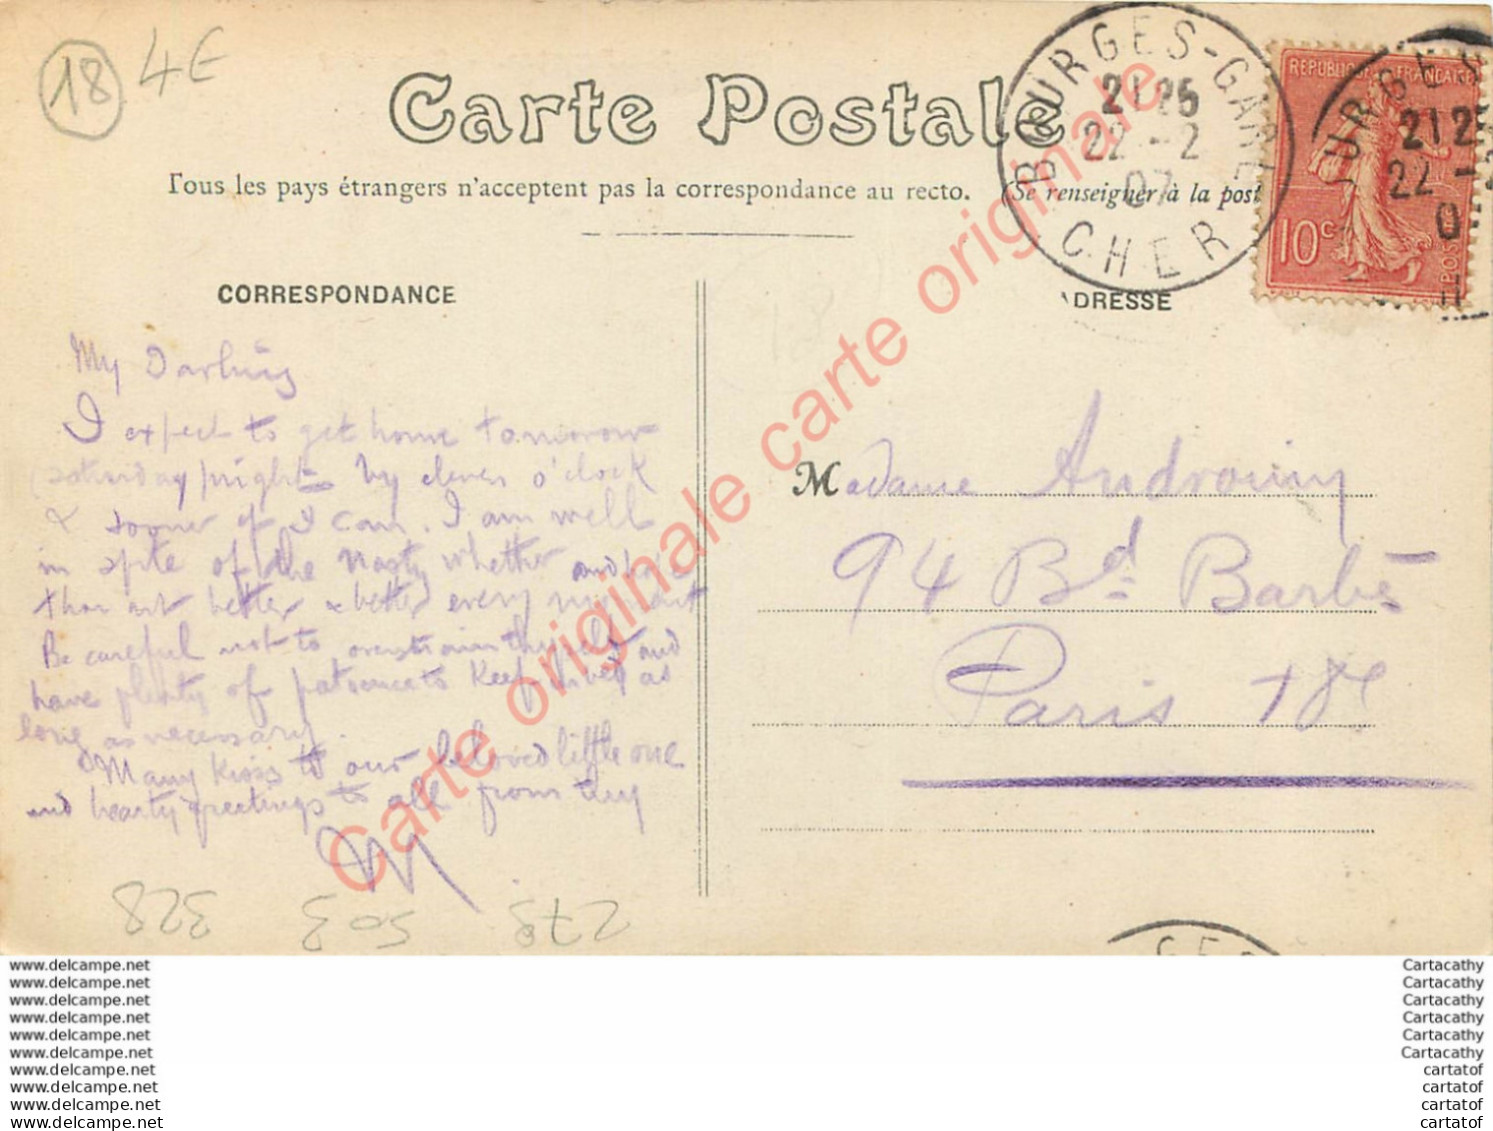 18 4E
Carte Postale
Tous les pays étrangers n'acceptent pas la correspondance au recto. (Se renseigner à la post
BOURGES-GARE
21 25
22 - 2
07
CHER
REPUBLIQUE FRANÇAISE
10c
POS
URGES
212
22 -
0
CORRESPONDANCE
ADRESSE
My Darling
I expect to get home tomorrow
(saturday) night by eleven o'clock
& sooner if I can. I am well
in spite of the nasty whether and hope
thou art better & better every moment
Be careful not to overstrain thyself and
have plenty of patience to keep in bed as
long as necessary.
Many kisses to our beloved little one
and hearty greetings to all from thy
M
Madame Androuin
94 Bd Barbès
Paris 18e
328 503 278
Carte originale carte originale carte originale
www.delcampe.net
www.delcampe.net
www.delcampe.net
www.delcampe.net
www.delcampe.net
www.delcampe.net
www.delcampe.net
www.delcampe.net
www.delcampe.net
www.delcampe.net
Cartacathy
Cartacathy
Cartacathy
Cartacathy
Cartacathy
Cartacathy
cartatof
cartatof
cartatof
cartatof